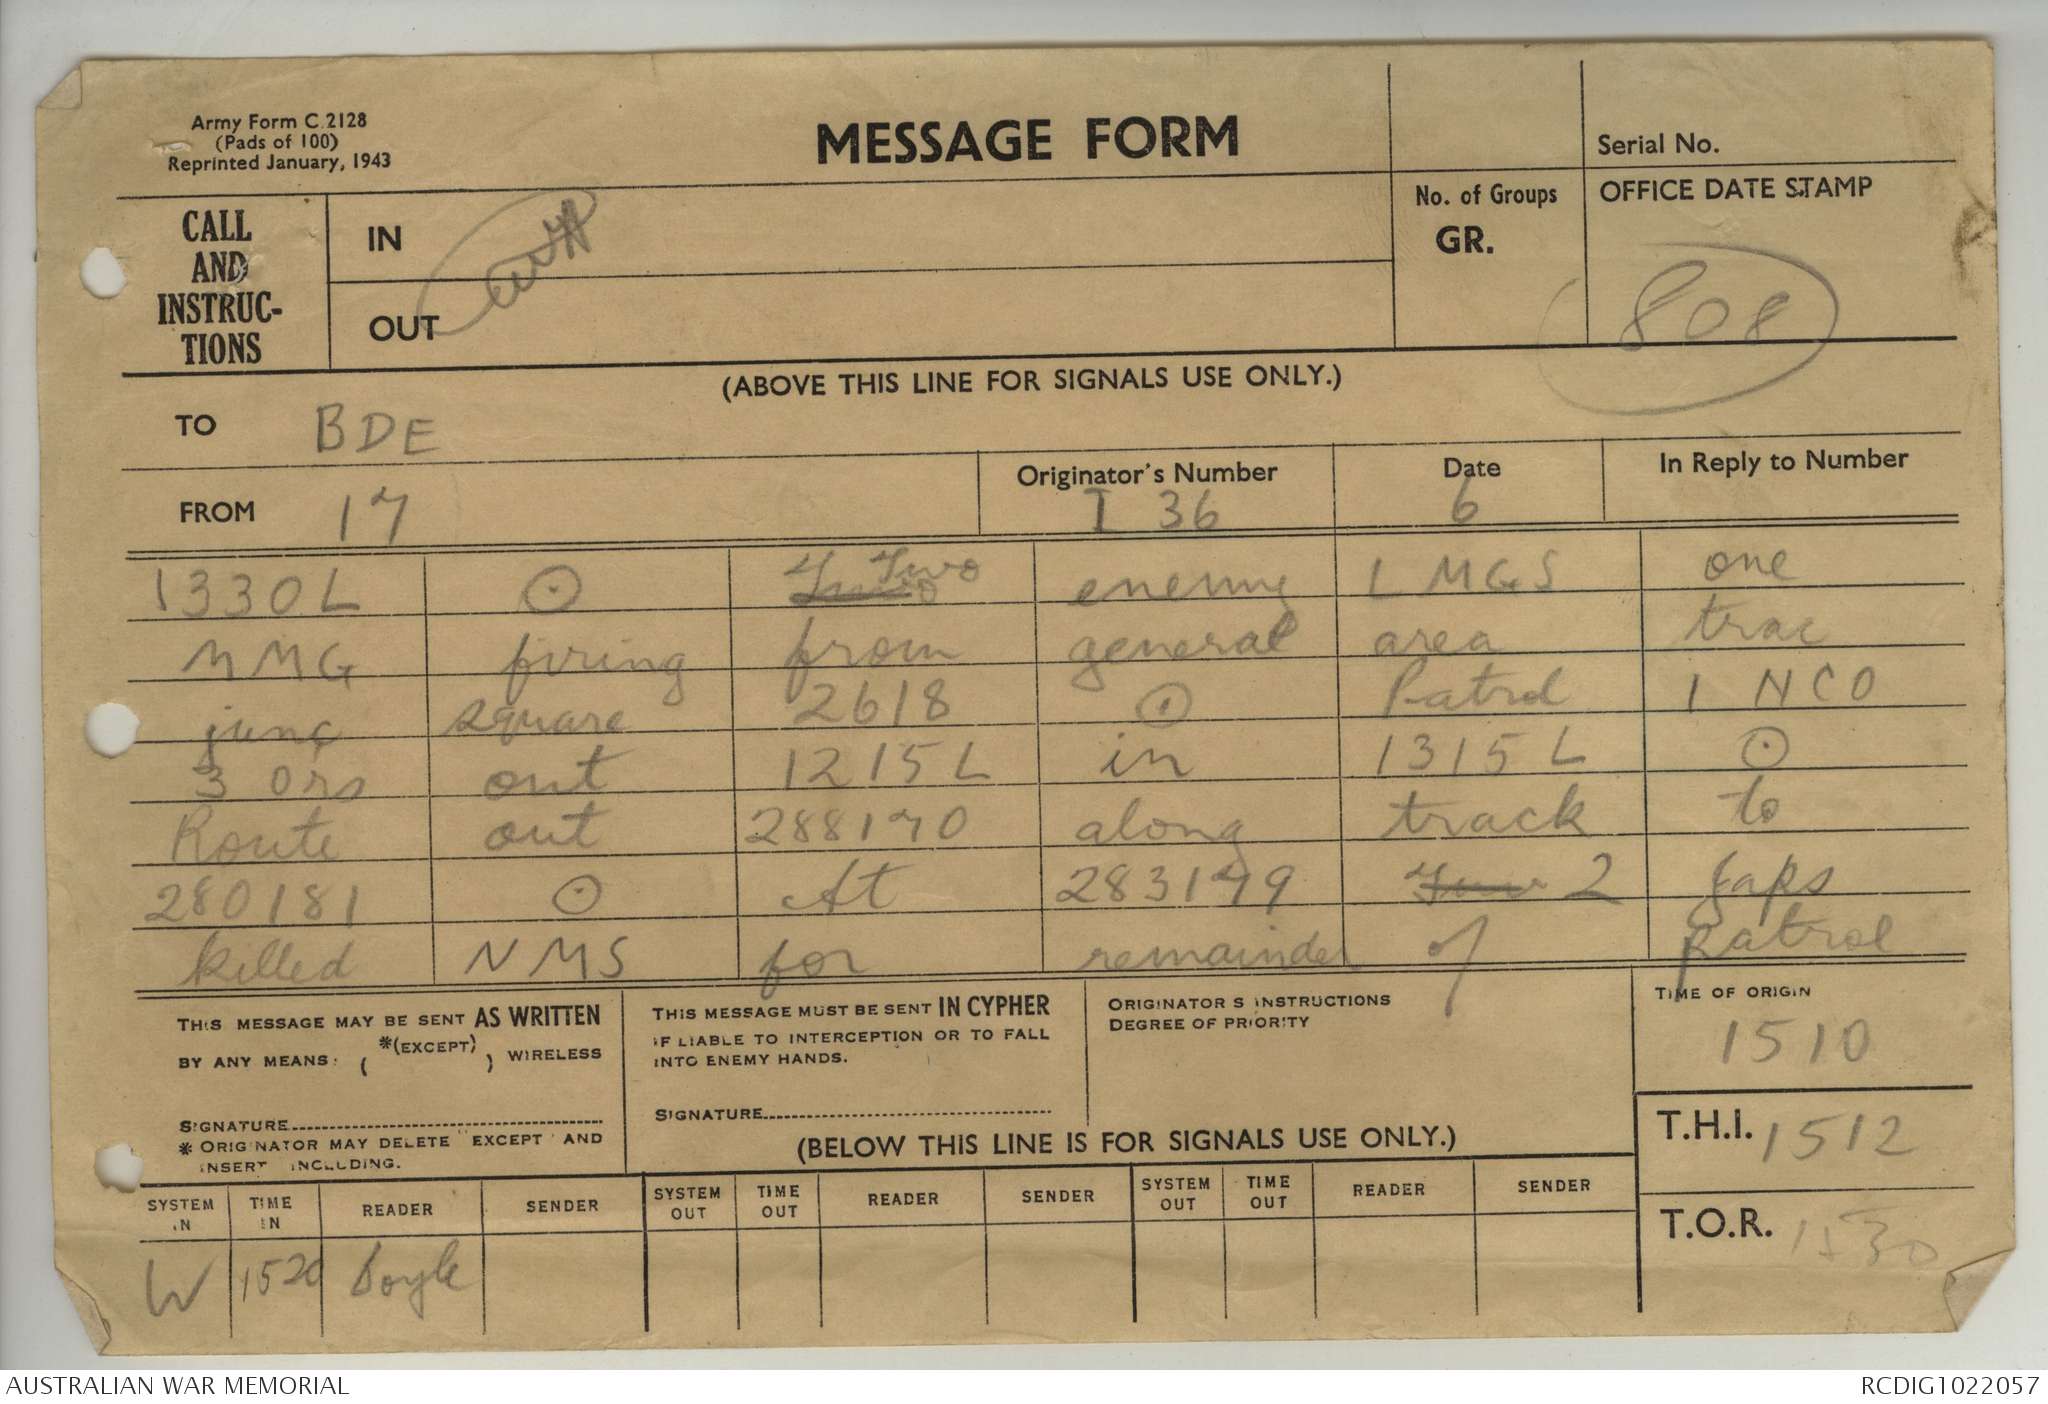 Army Form C.2128
(Pads of 100)
Reprinted January, 1943
MESSAGE FORM
Serial No.
CALL
AND
INSTRUC-
TIONS
IN
OUT
No. of Groups
GR.
OFFICE DATE STAMP
808
(ABOVE THIS LINE FOR SIGNALS USE ONLY.)
TO BDE
FROM 17
Originator's Number
I 36
Date
6
In Reply to Number
1330L ⊙ Two Two enemy LMGS one
MMG firing from general area trac
junc square 2618 ⊙ Patrol 1 NCO
3 ors out 1215L in 1315L ⊙
Route out 288170 along track to
280181 ⊙ At 283179 Two 2 Japs
killed NMS for remainder of patrol
THIS MESSAGE MAY BE SENT AS WRITTEN
BY ANY MEANS. ( *(EXCEPT) ) WIRELESS
SIGNATURE
* ORIGINATOR MAY DELETE "EXCEPT" AND
INSERT INCLUDING.
THIS MESSAGE MUST BE SENT IN CYPHER
IF LIABLE TO INTERCEPTION OR TO FALL
INTO ENEMY HANDS.
SIGNATURE
ORIGINATOR S INSTRUCTIONS
DEGREE OF PRIORITY
TIME OF ORIGIN
1510
(BELOW THIS LINE IS FOR SIGNALS USE ONLY.)
T.H.I. 1512
T.O.R. 1530
SYSTEM IN TIME IN READER SENDER SYSTEM OUT TIME OUT READER SENDER SYSTEM OUT TIME OUT READER SENDER
W 1520 Boyle
AUSTRALIAN WAR MEMORIAL
RCDIG1022057